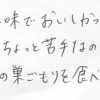 味でおいしかっ
ちょっと苦手なの
の巣ごもりを食べ